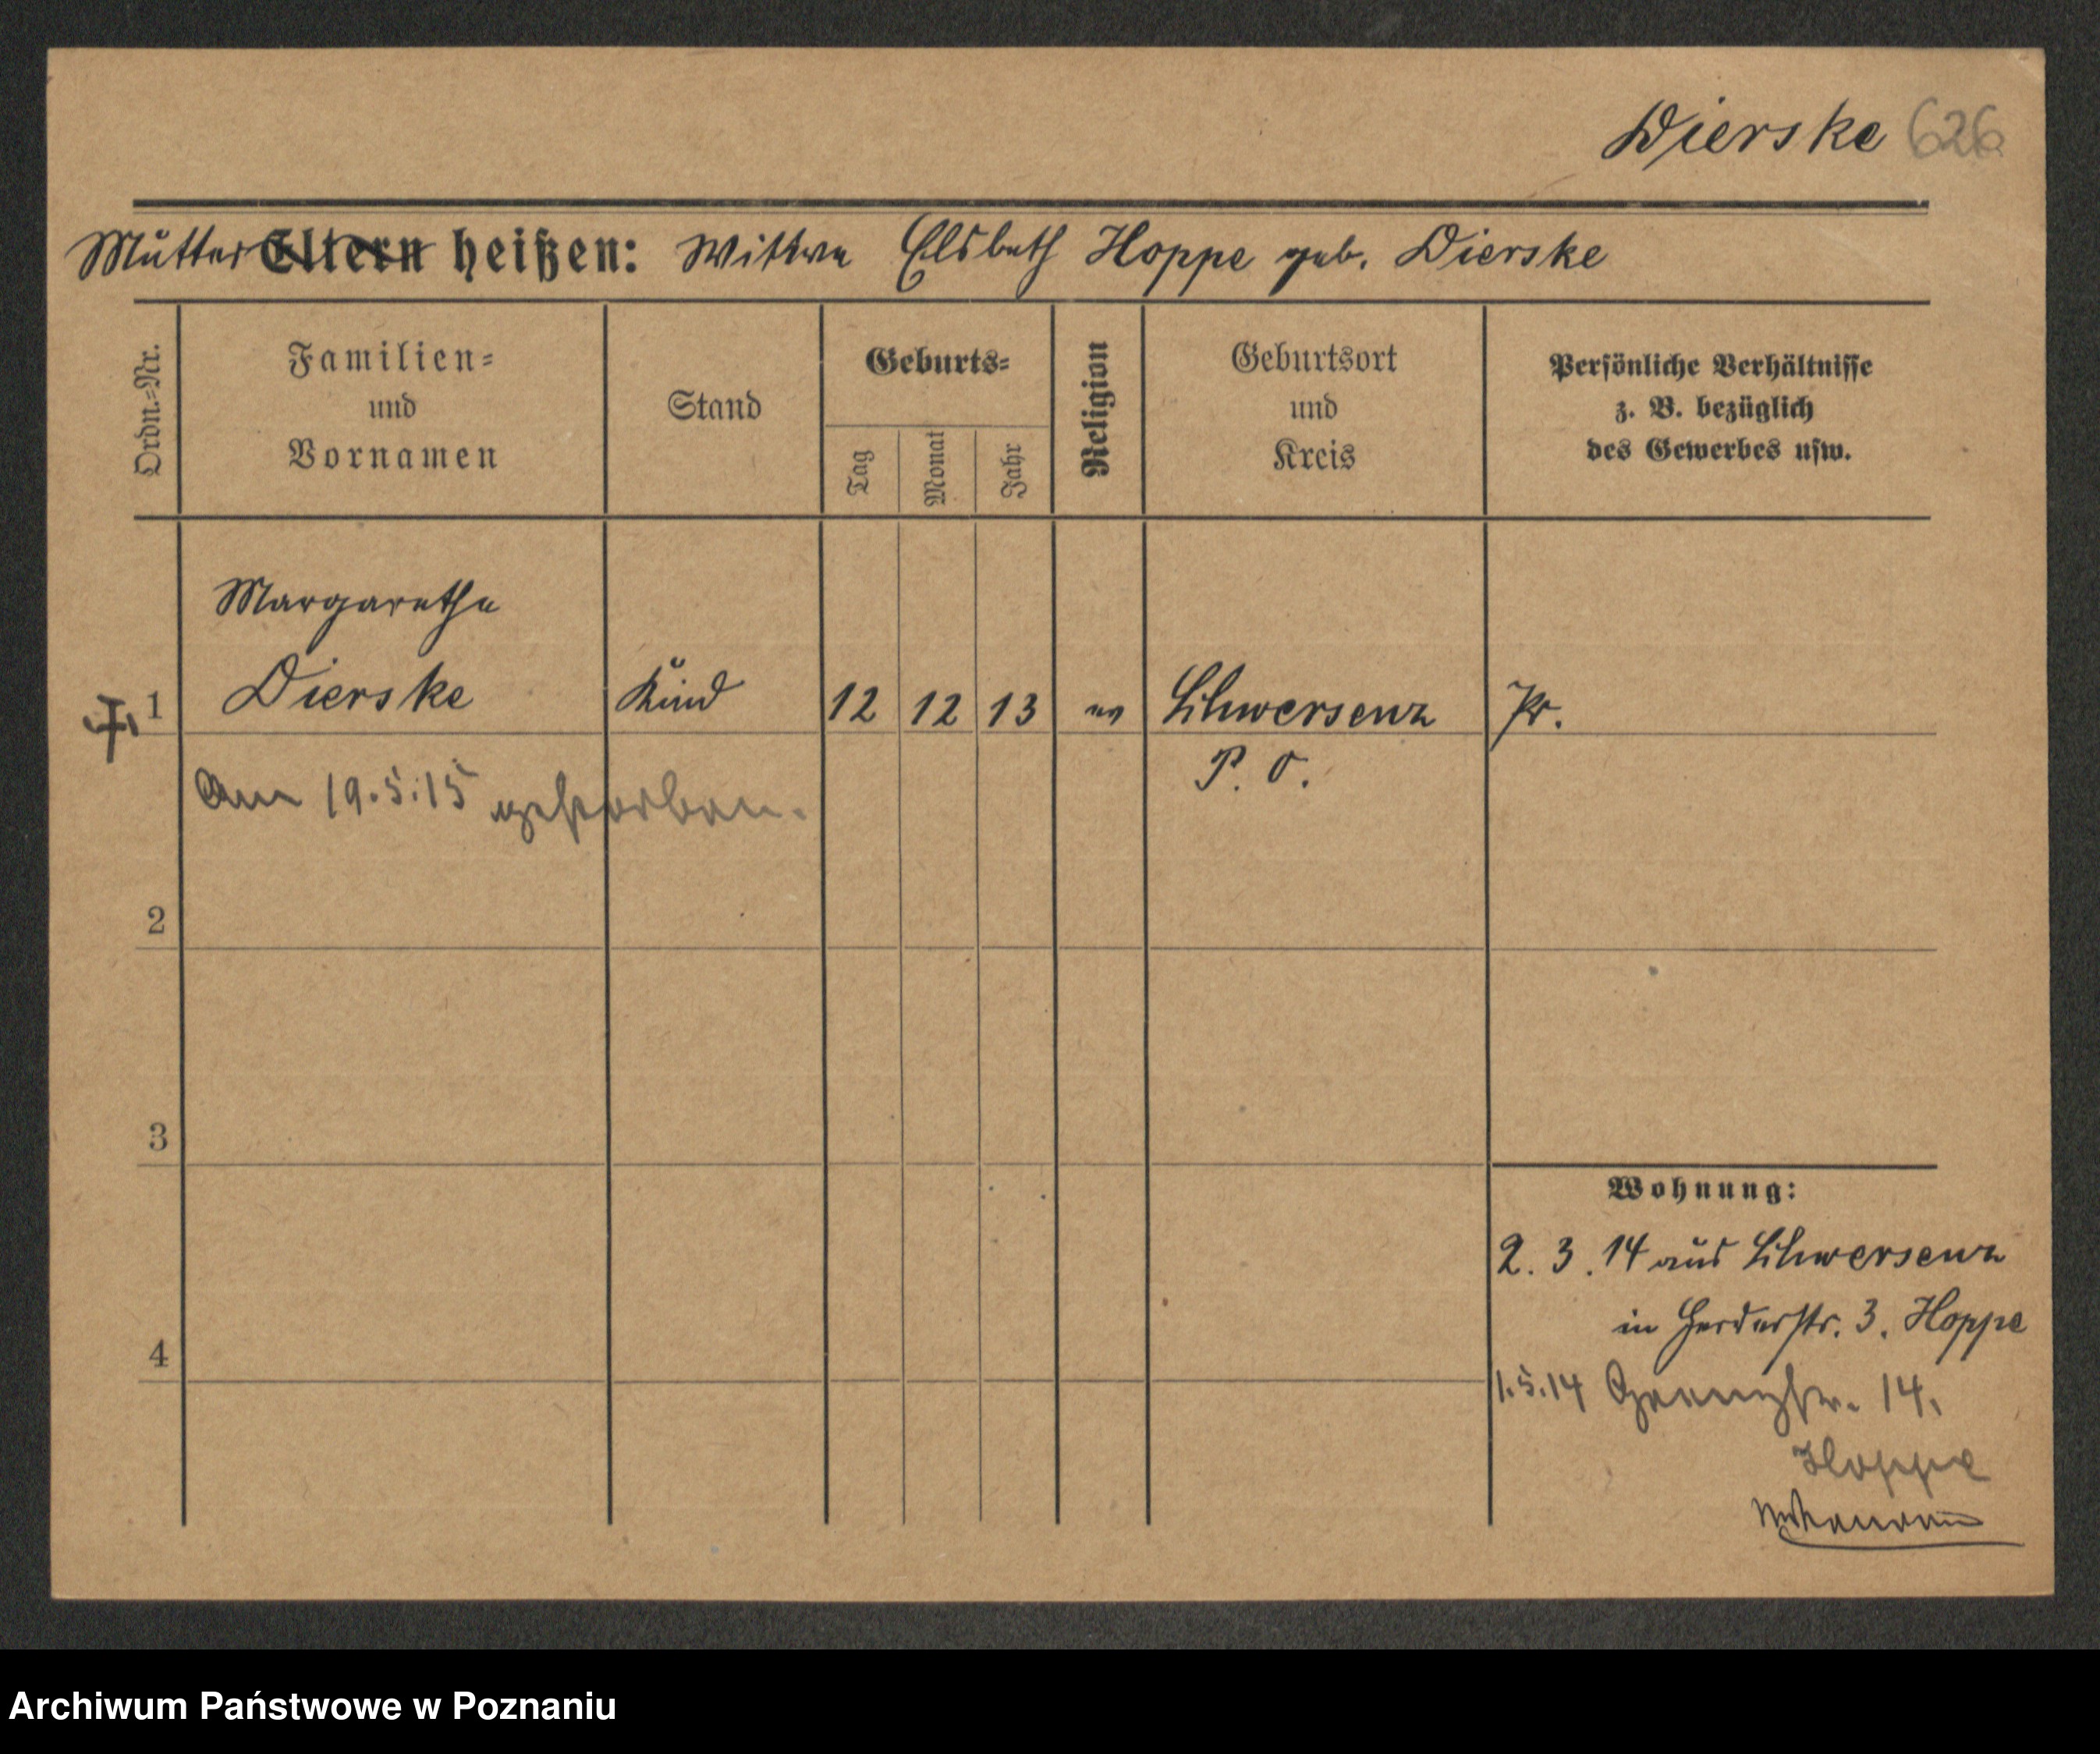 Dierske 626
Mutter Eltern heißen: Witwe Elsbeth Hoppe geb. Dierske
Ordn.-Nr.
Familien-
und
Vornamen
Stand
Geburts-
Tag
Monat
Jahr
Religion
Geburtsort
und
Kreis
Persönliche Verhältnisse
z. B. bezüglich
des Gewerbes usw.
Margarethe
1 Dierske Kind 12 12 13 ev Schwersenz Pr.
P. O.
Am 19.5.15 gestorben.
2
3
4
Wohnung:
2. 3. 14 aus Schwersenz
in Herderstr. 3. Hoppe
1.5.14 Grenzstr. 14.
Hoppe
Archiwum Państwowe w Poznaniu